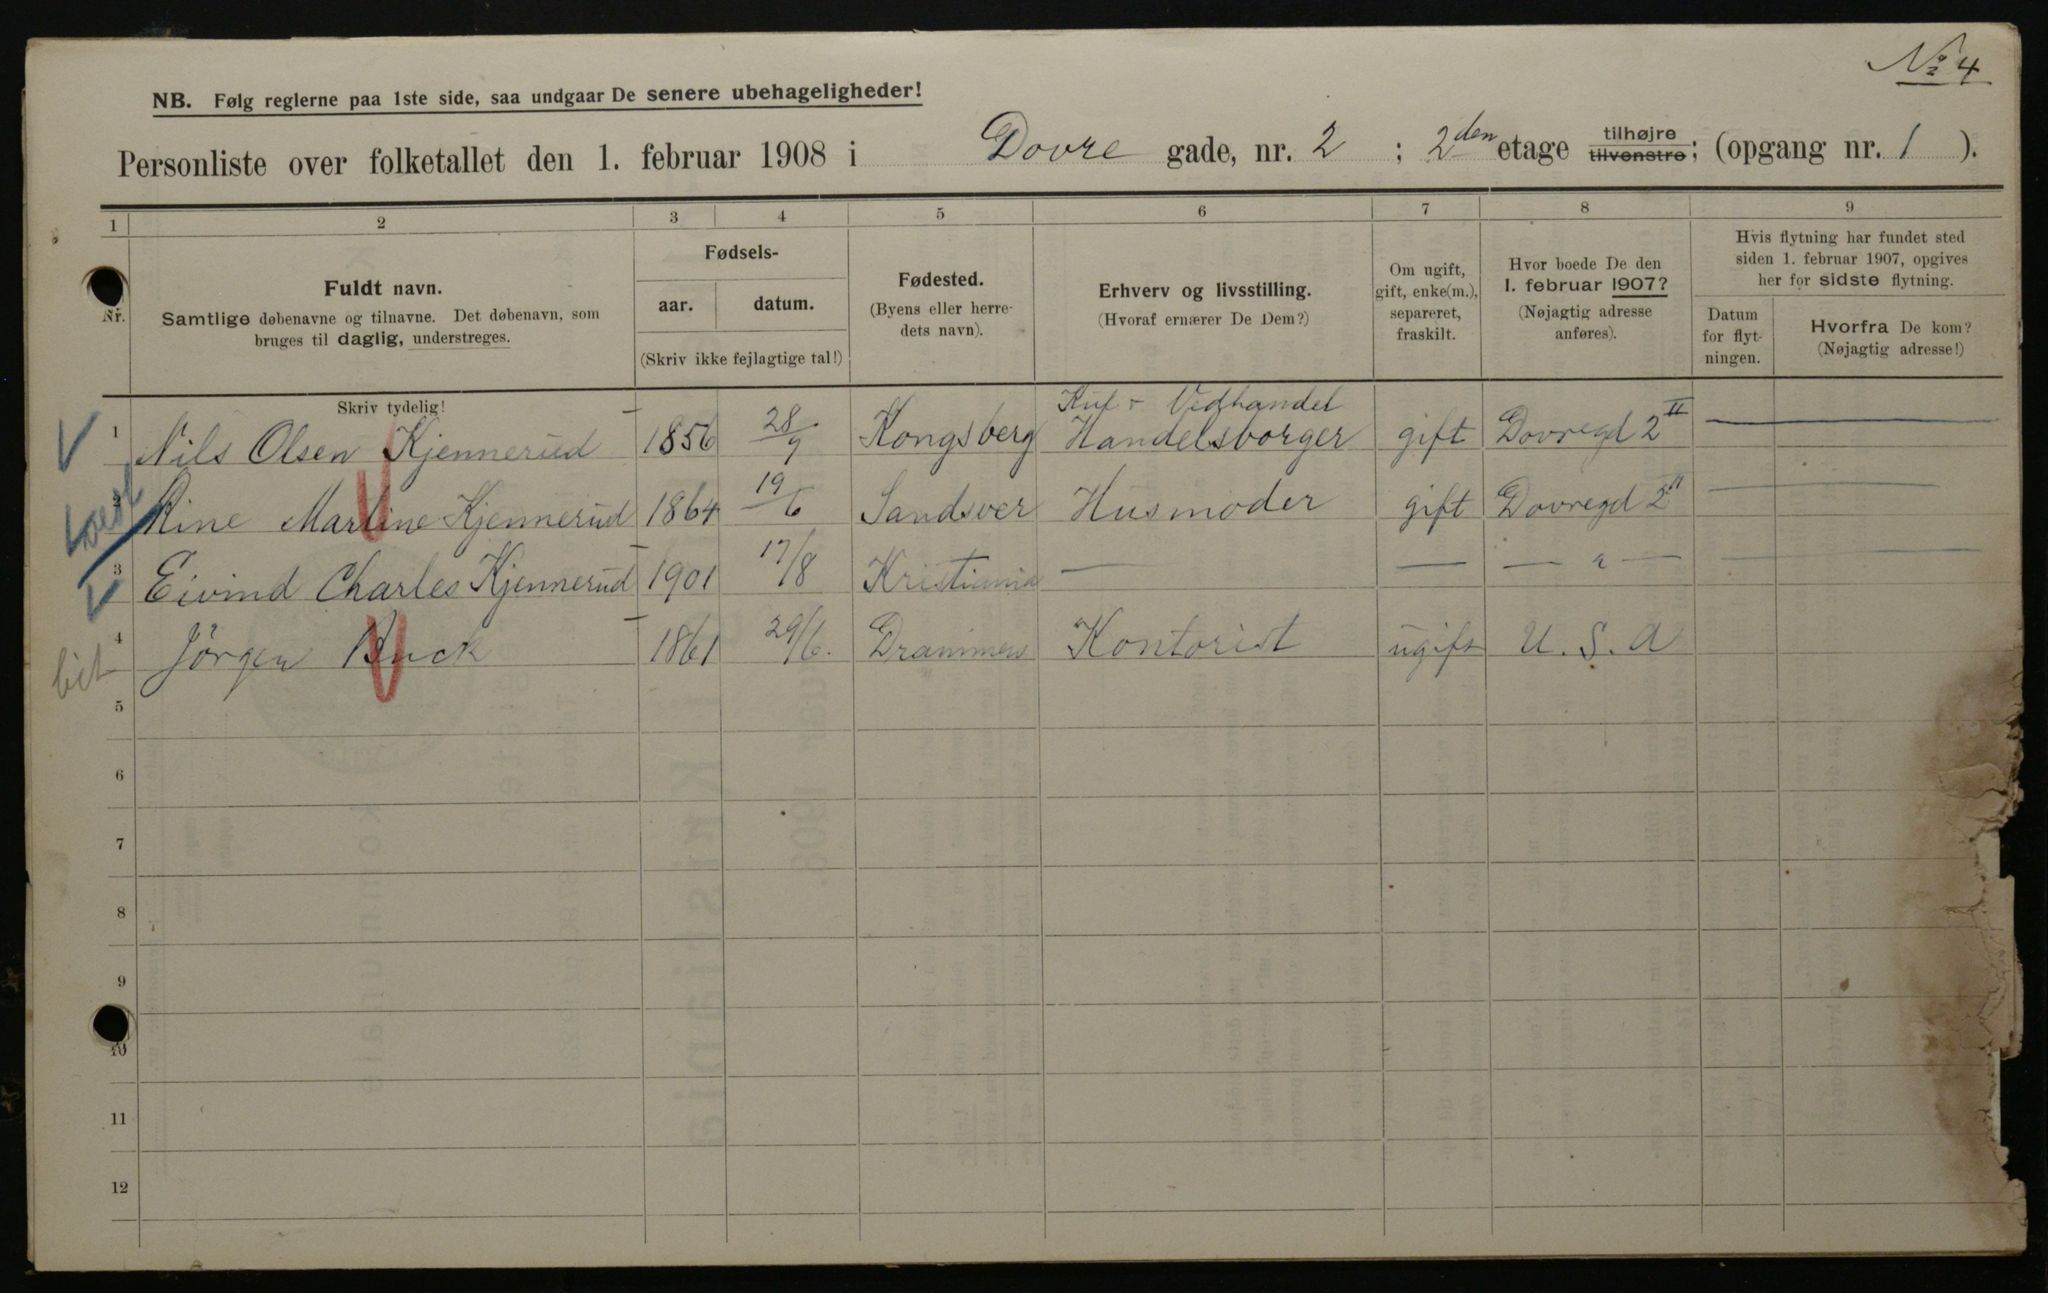 № 4
NB. Følg reglerne paa 1ste side, saa undgaar De senere ubehageligheder!
Personliste over folketallet den 1. februar 1908 i Dovre gade, nr. 2 ; 2den etage tilhøjre tilvenstre; (opgang nr. 1 ).
1 2 3 4 5 6 7 8 9
Nr.
Fuldt navn.
Samtlige døbenavne og tilnavne. Det døbenavn, som
bruges til daglig, understreges.
Skriv tydelig!
Fødsels-
aar. datum.
(Skriv ikke fejlagtige tal!)
Fødested.
(Byens eller herre-
dets navn).
Erhverv og livsstilling.
(Hvoraf ernærer De Dem?)
Om ugift,
gift, enke(m.),
separeret,
fraskilt.
Hvor boede De den
1. februar 1907?
(Nøjagtig adresse
anføres).
Hvis flytning har fundet sted
siden 1. februar 1907, opgives
her for sidste flytning.
Datum
for flyt-
ningen.
Hvorfra De kom?
(Nøjagtig adresse!)
Kul - Vedhandel
1 Nils Olsen Kjennerud 1856 28/9 Kongsberg Handelsborger gift Dovregd 2 II — —
2 Rine Martine Kjennerud 1864 19/6 Sandsver Husmoder gift Dovregd 2 II — —
3 Eivind Charles Kjennerud 1901 17/8 Kristiania — — — " — — —
4 Jörgen Buck 1861 29/6. Drammen Kontorist ugift U. S. A
5
6
7
8
9
10
11
12